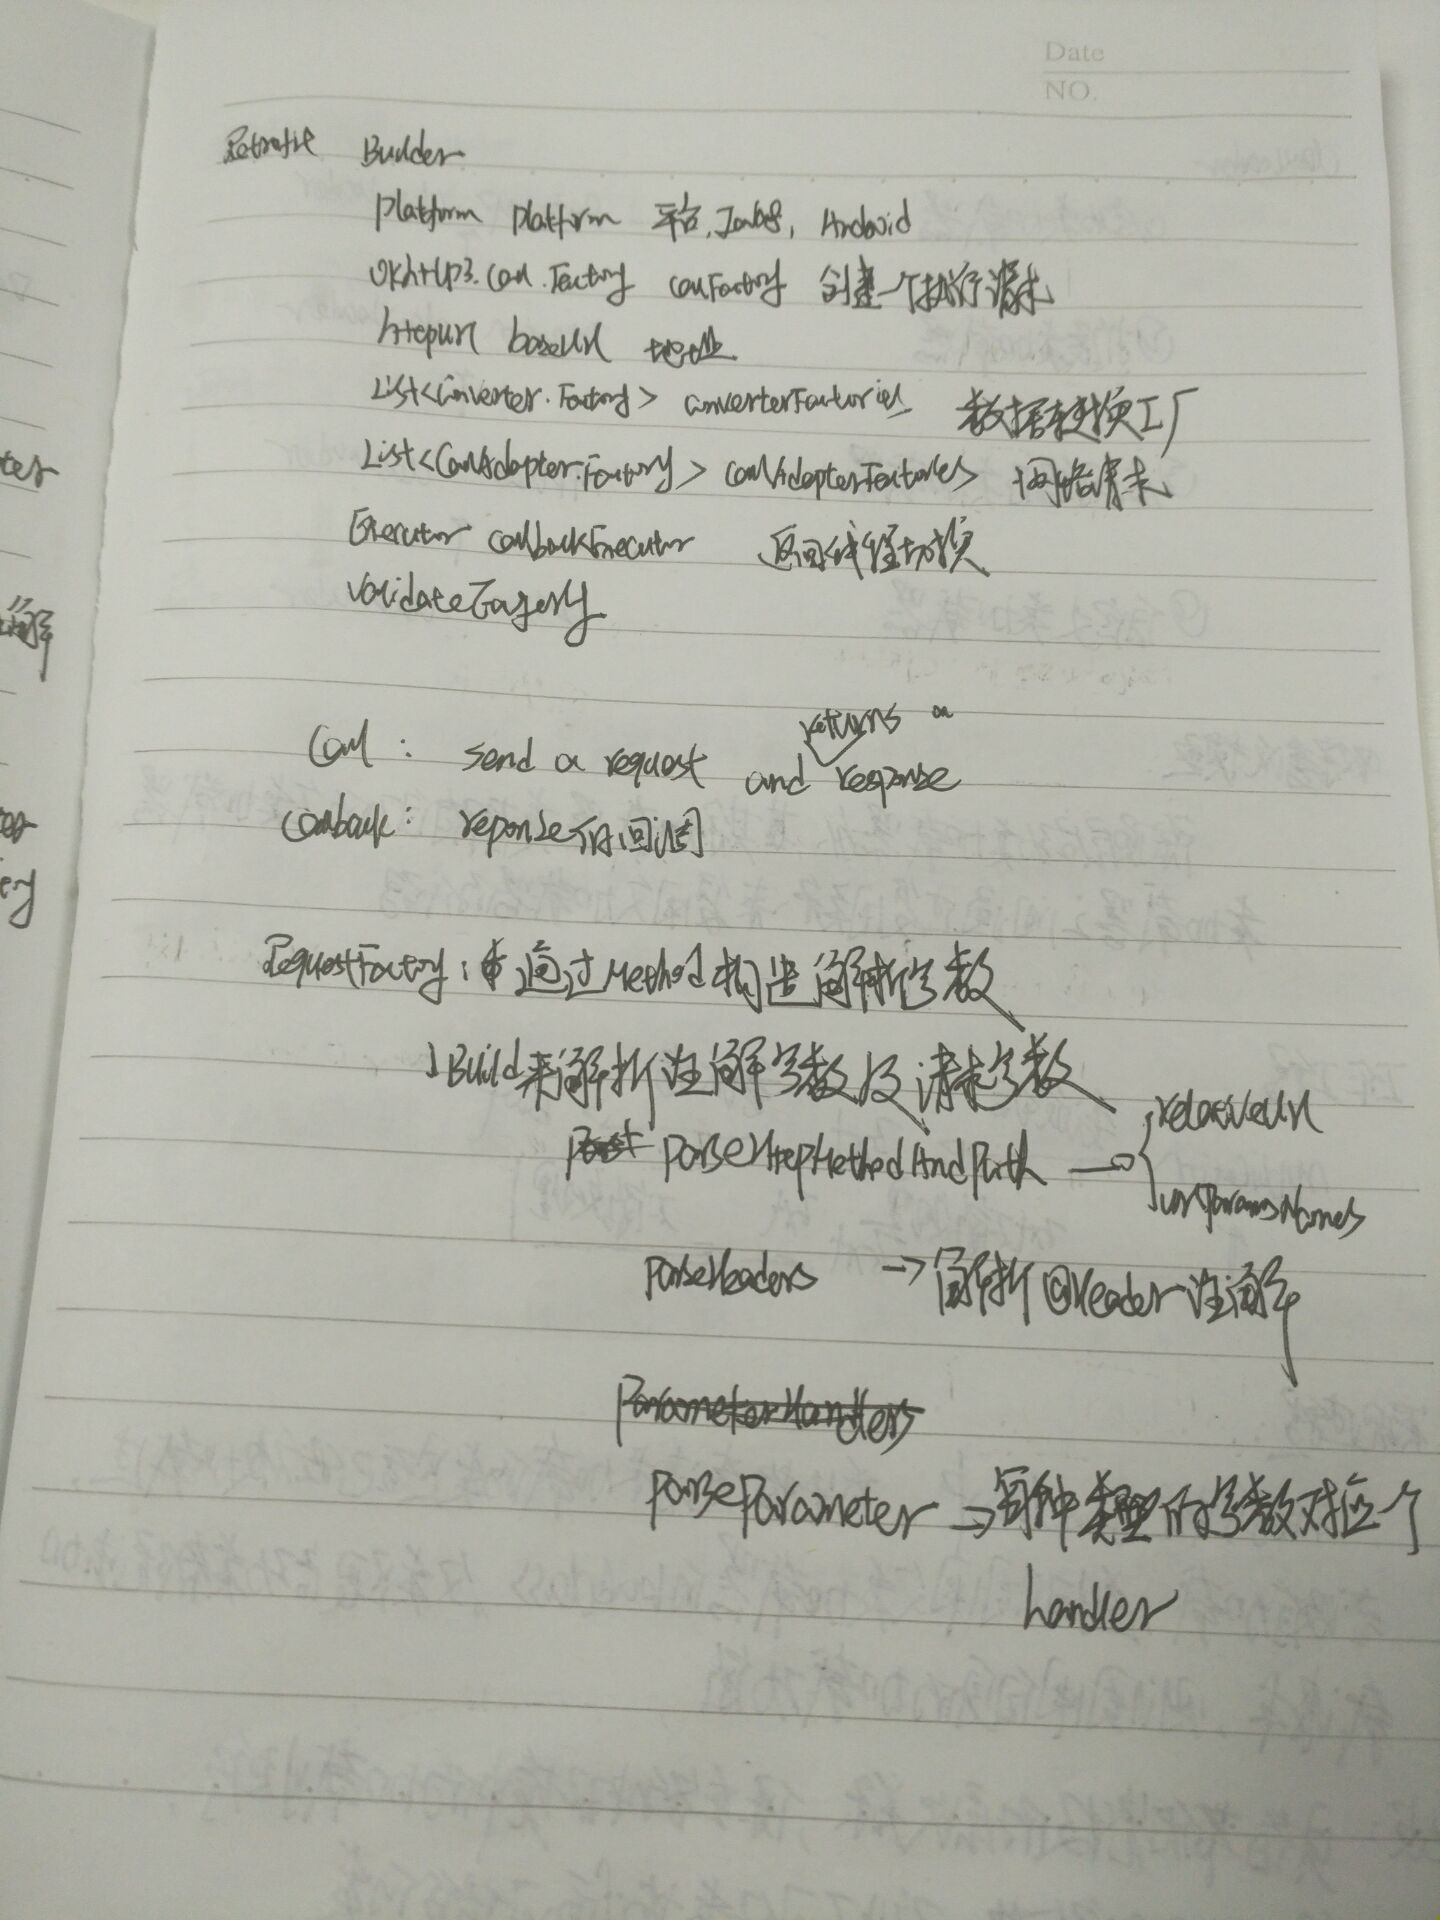 Date
NO.
Retrofit Builder
Platform platform 平台,Java8, Android
okhttp3.Call.Factory callFactory 创建一个执行请求
HttpUrl baseUrl 地址
List<Converter.Factory> converterFactories 数据转换工厂
List<CallAdapter.Factory> callAdapterFactories 网络请求
Executor callbackExecutor 返回线程切换
validateEagerly
returns a
Call : send a request and response
Callback : reponse的回调
RequestFactory : 通过Method构造解析参数
Build来解析注解参数及请求参数
parseHttpMethodAndPath → { relativeUrl
urlParamsNames
parseHeaders → 解析@Header注解
ParameterHandlers
parseParameter → 每种类型的参数对应一个
handler